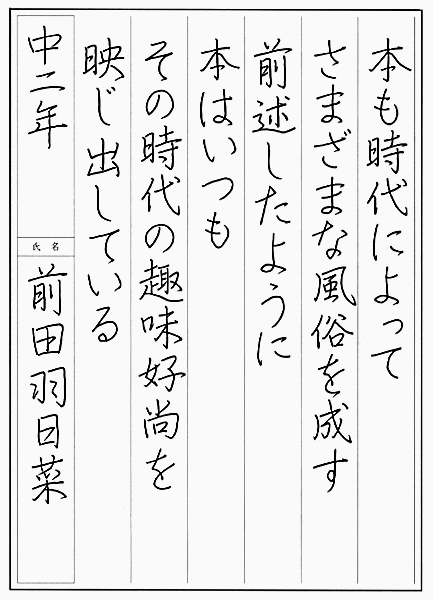 本も時代によって
さまざまな風俗を成す
前述したように
本はいつも
その時代の趣味好尚を
映じ出している
中二年
氏名
前田羽日菜